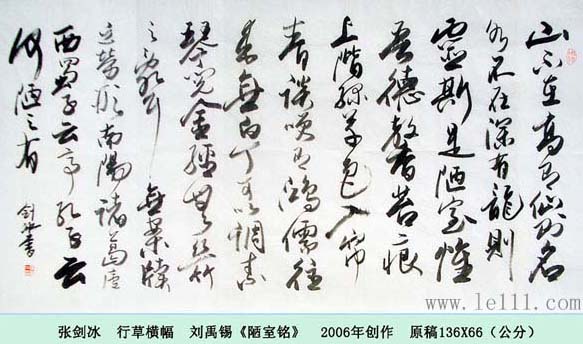 山不在高有仙则名
水不在深有龍則
靈斯是陋室惟
吾德馨苔痕
上階绿草色入帘
青談笑有鴻儒往
来無白丁可以調素
琴阅金經無丝竹
之亂耳無案牘
之勞形南陽諸葛廬
西蜀子云亭孔子云
何陋之有
剑冰書
www.le111.com
张剑冰 行草横幅 刘禹锡《陋室铭》 2006年创作 原稿136X66（公分）